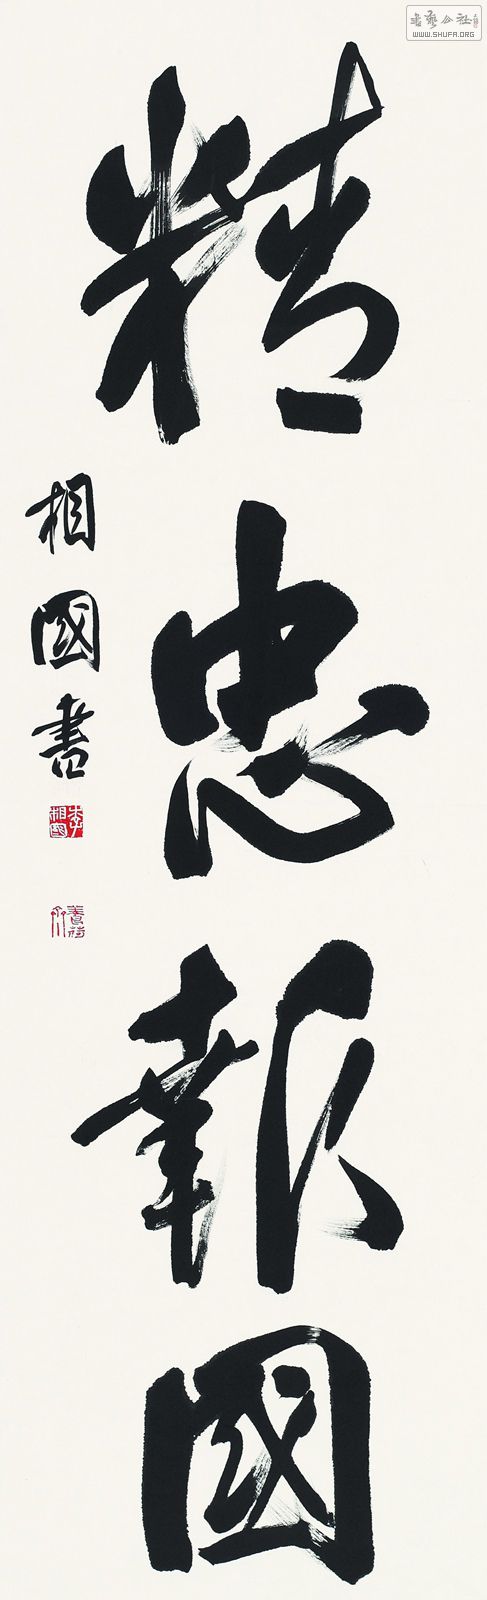 書藝公社
WWW.SHUFA.ORG
精忠報國
相國書
李相國